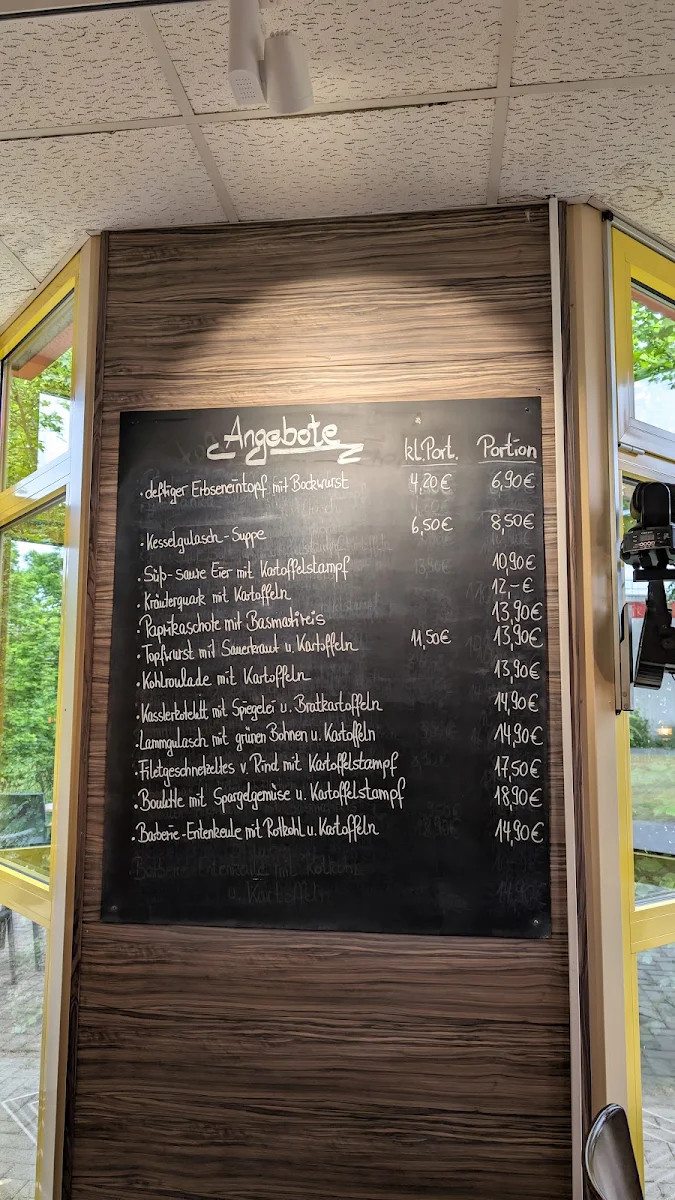 Angebote kl. Port. Portion
· deftiger Erbseneintopf mit Bockwurst 4,20€ 6,90€
· Kesselgulasch-Suppe 6,50€ 8,50€
· Süß-saure Eier mit Kartoffelstampf 10,90€
· Kräuterquark mit Kartoffeln 12,-€
· Paprikaschote mit Basmatireis 13,90€
· Topfwurst mit Sauerkraut u. Kartoffeln 11,50€ 13,90€
· Kohlroulade mit Kartoffeln 13,90€
· Kasslerkotelett mit Spiegelei u. Bratkartoffeln 14,90€
· Lammgulasch mit grünen Bohnen u. Kartoffeln 14,90€
· Filetgeschnetzeltes v. Rind mit Kartoffelstampf 17,50€
· Boulette mit Spargelgemüse u. Kartoffelstampf 18,90€
· Barberie-Entenkeule mit Rotkohl u. Kartoffeln 14,90€
Barberie-Entenkeule mit Rotkohl
u. Kartoffeln 14,90€